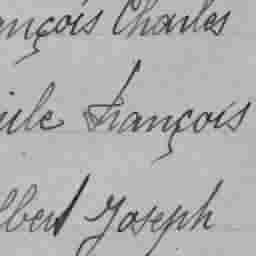 ançois Charles
ile François
lbert Joseph